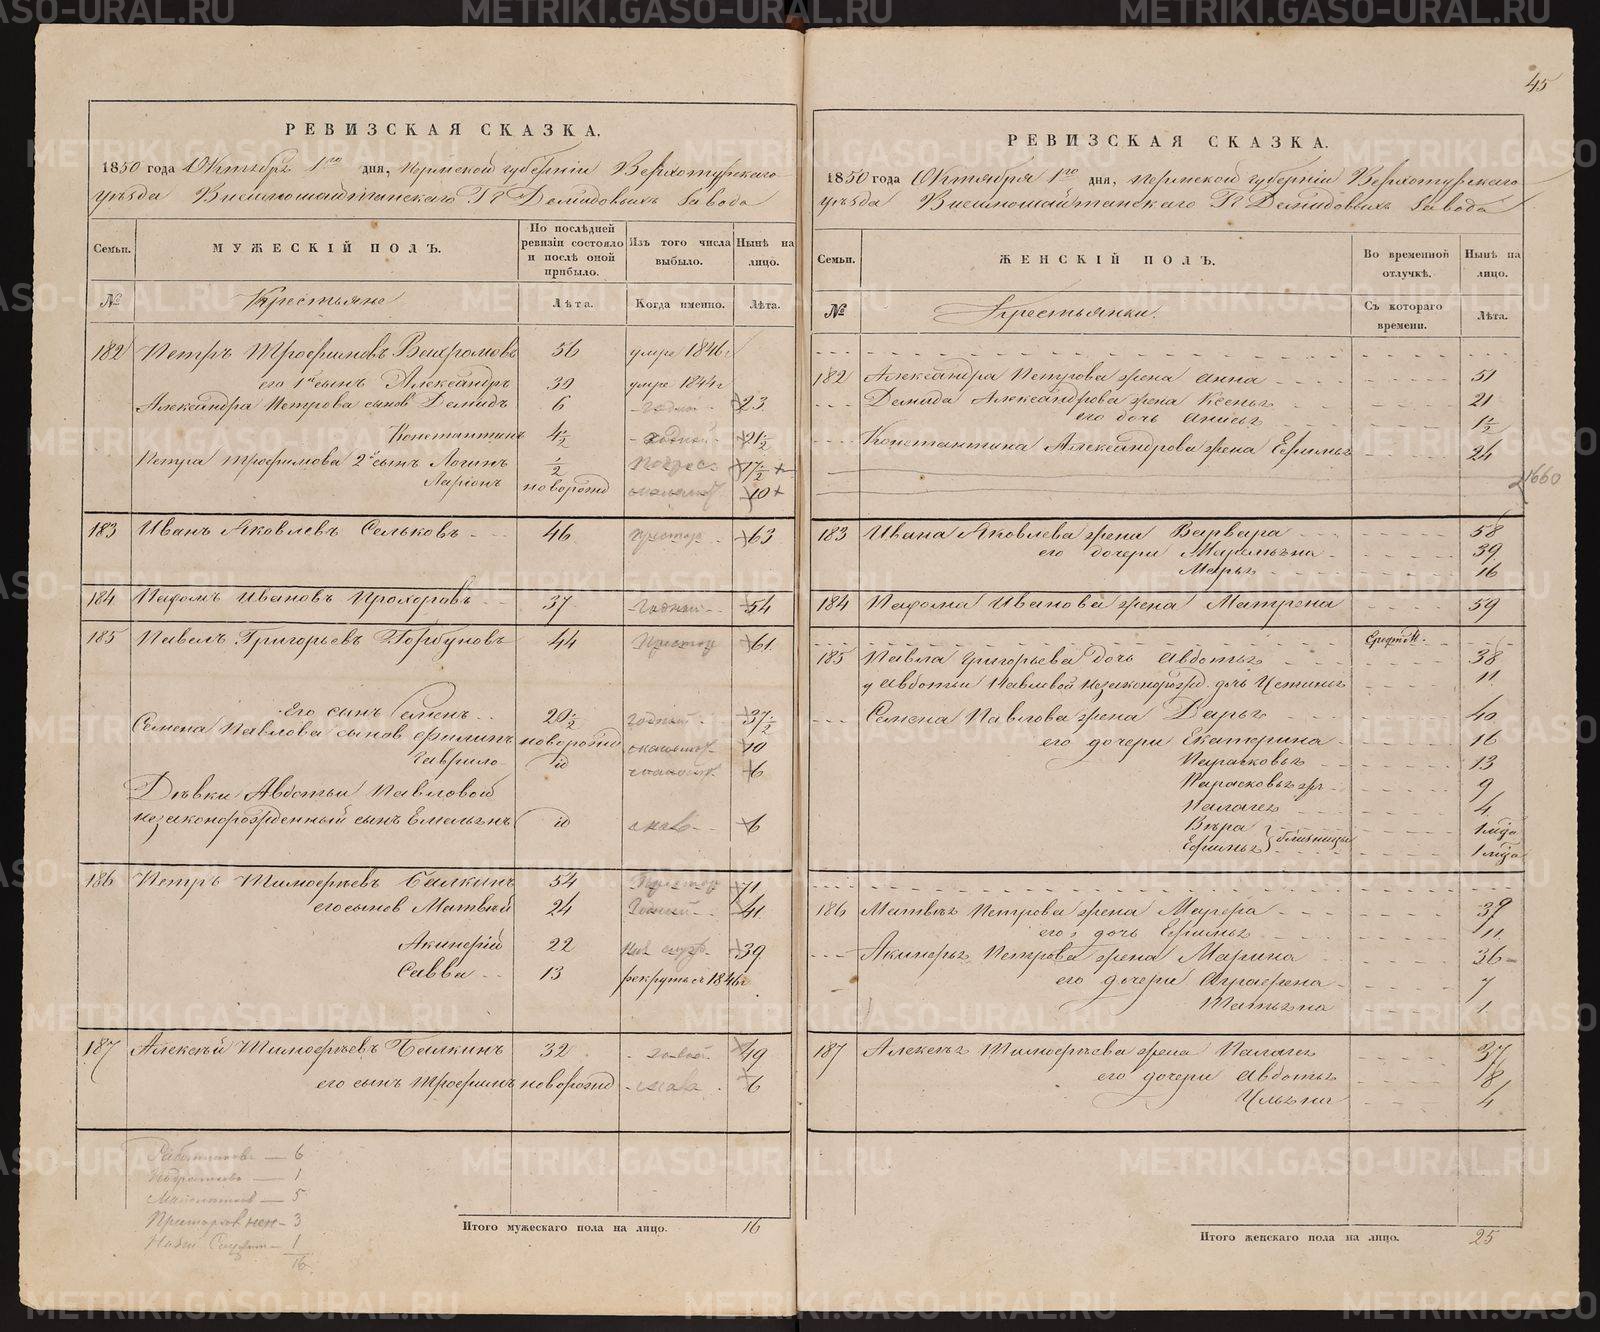 РЕВИЗСКАЯ СКАЗКА.
1850 года Октября 1го дня, Пермской губернiи Верхотурскаго
уѣзда Висимошайтанскаго Гг Демидовыхъ Завода
Семьи.
МУЖЕСКІЙ ПОЛЪ.
По послѣдней ревизіи состояло и послѣ оной прибыло.
Изъ того числа выбыло.
Нынѣ на лицо.
№
Крестьяне
Лѣта.
Когда именно.
Лѣта.
182 Петръ Трофимовъ 56 умре 1846г
его 1й сынъ Александръ 39 умре 1844г
Александра Петрова сынов Демидъ 6 годный 23
Константинъ 4½ годный 21½
Петра Трофимова 2й сынъ Логинъ ½ 17½
Ларіонъ новорожд 10
183 Иванъ Яковлевъ Сельковъ 46 престар 63
184 Пафомъ Ивановъ Прохоровъ 37 годный 54
185 Павелъ Григорьевъ Горбуновъ 44 престар 61
Его сынъ Семенъ 20½ годный 37½
Семена Павлова сынов Филипъ новорожд 10
Гаврило id 6
Дѣвки Авдотьи Павловой
незаконорожденный сынъ Емельянъ id 6
186 Петръ Тимофѣевъ Балкинъ 54 престар 71
его сынов Матвѣй 24 годный 41
Акинфій 22 39
Савва 13 рекрутъ с 1846г
187 Алексѣй Тимофѣевъ Балкинъ 32 49
его сынъ Трофимъ новорожд 6
Работников — 6
— 1
Малолетков — 5
— 3
— 1
16
Итого мужескаго пола на лицо. 16
45
РЕВИЗСКАЯ СКАЗКА.
1850 года Октября 1го дня, Пермской губернiи Верхотурскаго
уѣзда Висимошайтанскаго Гг Демидовыхъ Завода
Семьи.
ЖЕНСКІЙ ПОЛЪ.
Во временной отлучкѣ.
Нынѣ на лицо.
№
Крестьянки.
Съ котораго времени.
Лѣта.
182 Александра Петрова жена Анна 51
Демида Александрова жена Ксенья 21
его дочь Анисья 1½
Константина Александрова жена Ефимья 24
1660
183 Ивана Яковлева жена Варвара 58
его дочери Маремьяна 39
Марья 16
184 Пафома Иванова жена Матрена 59
185 Павла Григорьева дочь Авдотья 38
у Авдотьи Павловой незаконорожд. дочь Устинья 11
Семена Павлова жена Дарья 40
его дочери Екатерина 16
Парасковья 13
Парасковья 9
Палагея 4
Вѣра 1
Ефимья близницы 1
186 Матвѣя Петрова жена Марфа 39
его дочь Ефимья 11
Акинфья Петрова жена Марина 36
его дочери Аграфена 7
Татьяна 1
187 Алексѣя Тимофѣева жена Палагея 37
его дочери Авдотья 8
Ульяна 4
Итого женскаго пола на лицо. 25
METRIKI.GASO-URAL.RU